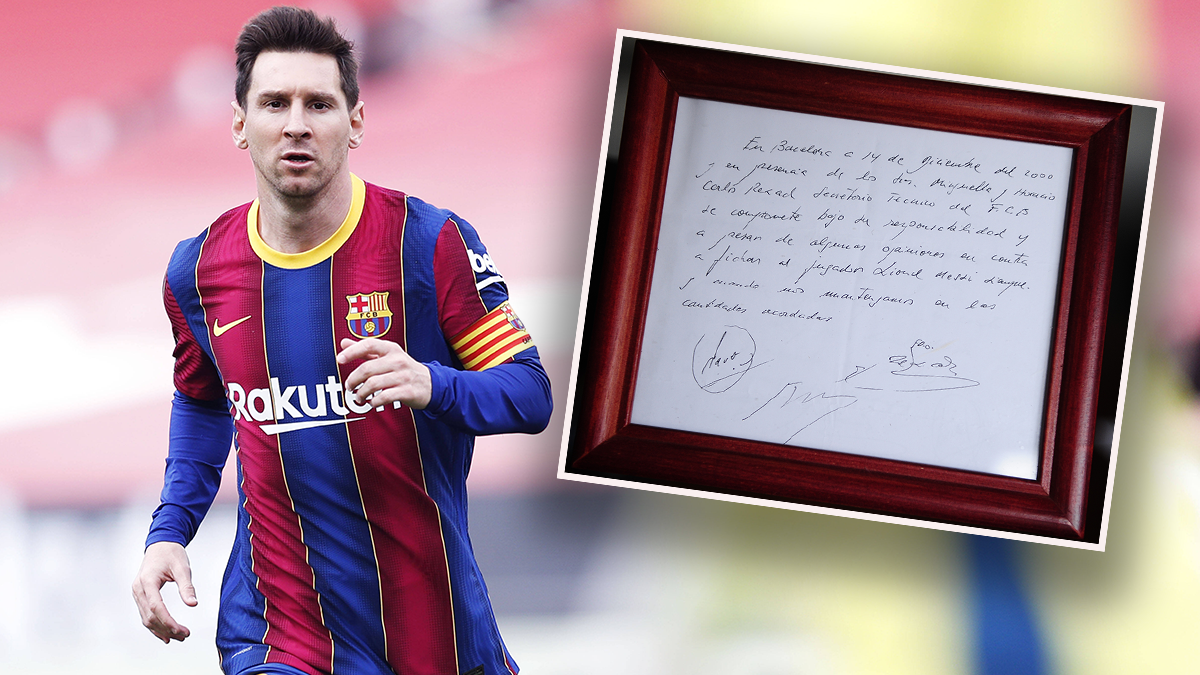 FCB
Rakuten
be
En Barcelona a 14 de diciembre del 2000
y en presencia de los Sres. Minguella y Horacio
Carlos Rexach Secretario Tecnico del F.C.B
se compromete bajo su responsabilidad y
a pesar de algunas opiniones en contra
a fichar al jugador Lionel Messi
y cuando nos mantengamos en las
cantidades acordadas